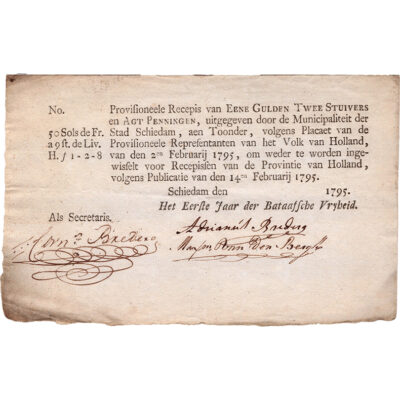 No. Provisioneele Recepis van EENE GULDEN TWEE STUIVERS
en AGT PENNINGEN, uitgegeven door de Municipaliteit der
50 Sols de Fr. Stad Schiedam, aen Toonder, volgens Placaet van de
a 9 st. de Liv. Provisioneele Repręsentanten van het Volk van Holland,
H. f 1-2-8 van den 2den Februarij 1795, om weder te worden inge-
wisselt voor Recepissen van de Provintie van Holland,
volgens Publicatie van den 14den Februarij 1795.
Schiedam den 1795.
Het Eerste Jaar der Bataafsche Vryheid.
Als Secretaris.
Corns. Bredero
Adrianus Bredero
den Bergh